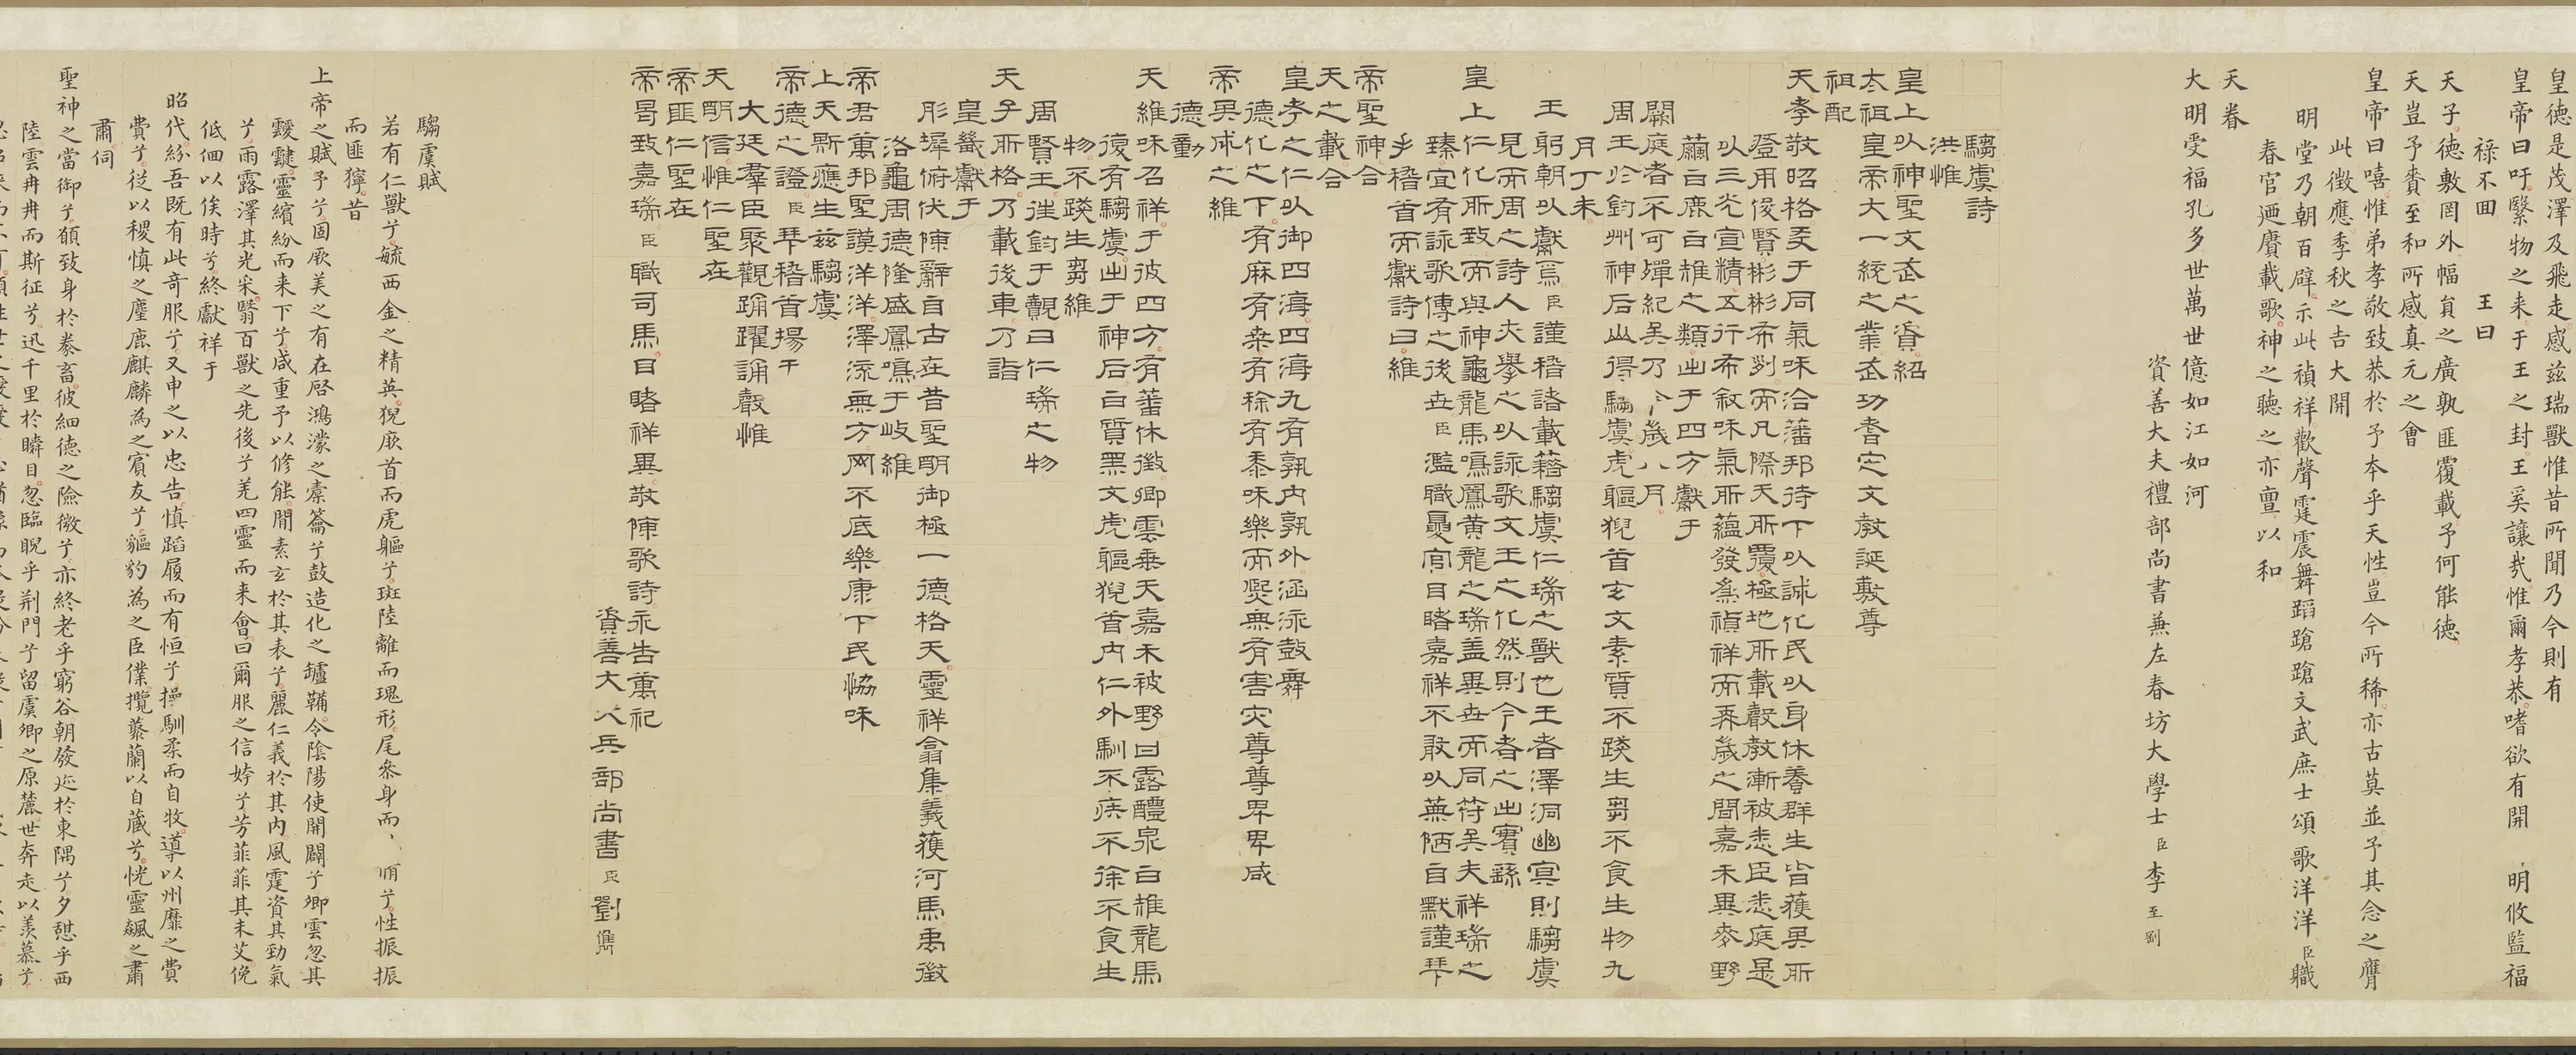 皇德是茂澤及飛走感茲瑞獸惟昔所聞乃今則有
皇帝曰吁繄物之来于王之封王奚讓㢤惟爾孝恭嗜欲有開 明攸監福
祿不回 王曰
天子德敷罔外幅員之廣孰匪覆載予何能德
天豈予賚至和所感真元之會
皇帝曰嘻惟弟孝敬致恭於予本乎天性豈今所稀亦古莫並予其念之膺
此徵應季秋之吉大開
明堂乃朝百辟示此禎祥歡聲霆震舞蹈蹌蹌文武庶士頌歌洋洋臣職
春官迺賡載歌神之聴之亦亶以和
天眷
大明受福孔多世萬世億如江如河
資善大夫禮部尚書兼左春坊大學士臣李至剛
騶虞詩
洪惟
皇上以神聖文武之資紹
太祖皇帝大一統之業武功耆定文教誕敷尊
祖配
天孝敬昭格爰于同氣咊洽藩邦待下以誠化民以身休養群生皆獲其所
登用俊賢彬彬布列而凡際天所覆極地所載聲教漸被悉臣悉庭是
以三光宣精五行布敘咊氣所蘊發為禎祥而再歲之間嘉禾異麥野
繭白鹿白雉之類出于四方獻于
闕庭者不可殫紀矣乃今歲八月
周王於鈞州神后山得騶虞虎軀猊首玄文素質不踐生芻不食生物九
月丁未
王躬朝以獻焉臣謹稽諸載籍騶虞仁瑞之獸也王者澤洞幽冥則騶虞
見而周之詩人夫舉之以詠歌文王之化然則今者之出實繇
皇上仁化所致而與神龜龍馬鳴鳳黃龍之瑞盖異世而同符矣夫祥瑞之
臻宜有詠歌傳之後世臣濫職夏官目睹嘉祥不敢以蕪陋自默謹拜
手稽首而獻詩曰維
帝聖神合
天之載合
皇孝之仁以御四海四海九有孰內孰外涵泳鼓舞
德化之下有麻有桒有稌有黍咊樂而熈無有害灾尊尊卑卑咸
帝其成之維
德動
天維咊召祥于彼四方有蕃休徵卿雲乗天嘉禾被野曰露醴泉白雉龍馬
復有騶虞出于神后白質黑文虎軀猊首內仁外馴不疾不徐不食生
物不踐生芻維
周賢王往鈞于覿曰仁瑞之物
天子所格乃載後車乃詣
皇畿獻于
彤墀俯伏陳辭自古在昔聖明御極一德格天靈祥翕集羲獲河馬禹徵
洛龜周德隆盛鳳鳴于岐維
帝君萬邦聖謨洋洋澤流無方网不底樂康下民恊咊
上天斯應生茲騶虞
帝德之證臣拜稽首揚于
大廷羣臣聚觀踊躍誦聲惟
天明信惟仁聖在
帝匪仁聖在
帝曷致嘉瑞臣職司馬目睹祥異敬陳歌詩永告萬祀
資善大夫兵部尚書臣劉儁
騶虞賦
若有仁獸兮毓西金之精英猊厥首而虎軀兮斑陸離而瑰形尾叅身而脩兮性振振
而匪獰昔
上帝之賦予兮固厥美之有在啓鴻濛之橐籥兮鼓造化之鑪鞴令陰陽使開闢兮卿雲忽其
靉靆靈繽紛而来下兮咸重予以修能閒素玄於其表兮麗仁義於其内風霆資其勁氣
兮雨露澤其光采翳百獸之先後兮羌四靈而来會曰爾服之信姱兮芳菲菲其未艾俛
低佪以俟時兮終獻祥于
昭代紛吾既有此奇服兮又申之以忠告慎蹈履而有恒兮操馴柔而自牧導以州靡之費
費兮從以稷慎之麈鹿麒麟為之賓友兮貙豹為之臣僕攬蘩蘭以自蔵兮恍靈飊之肅
肅伺
聖神之當御兮願致身於豢畜彼細德之險微兮亦終老乎窮谷朝發迹於東隅兮夕憇乎西
陸雲冉冉而斯征兮迅千里於瞬目忽臨睨乎荆門兮留虞卿之原麓世奔走以羨慕兮